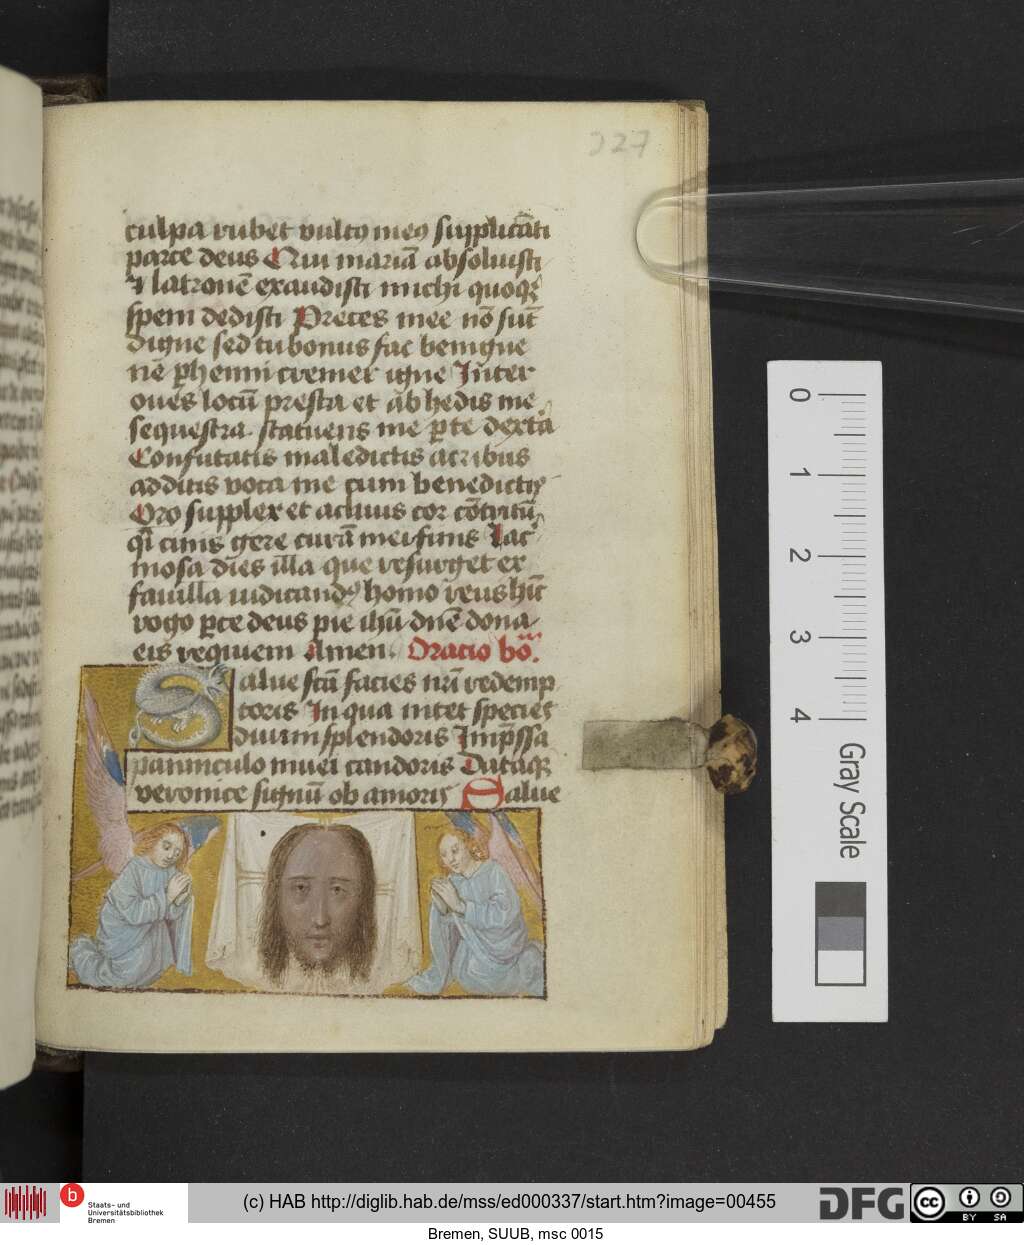 227
culpa rubet vultꝰ meꝰ supplicāti
parce deus Qui mariā absoluisti
⁊ latronē exaudisti michi quoqꝫ
spem dedisti Preces mee nō sūt
digne sed tu bonus fac benigne
nē ꝑhenni cremer igne Inter
oues locū presta et ab hedis me
sequestra statuens me ꝑte dextᵃ
Confutatis maledictis acribus
addictis voca me cum benedictꝭ
Oro supplex et acliuis cor cōtritū
qͥ cinis gere curā mei finis Lacͥ
mosa dies illa que resurget ex
fauilla iudicandꝰ homo reus huīc
rogo ꝑce deus pie ihū dnē dona
eis requiem Amen. Oracio bo.
Salue scā facies nrī redemp
toris In qua nitet species
diuini splendoris Impssa
panniculo niuei candoris Dataqꝫ
veronice signū ob amoris Salue
0
1
2
3
4
Gray Scale
b Staats- und
Universitätsbibliothek
Bremen
(c) HAB http://diglib.hab.de/mss/ed000337/start.htm?image=00455
DFG
cc BY SA
Bremen, SUUB, msc 0015